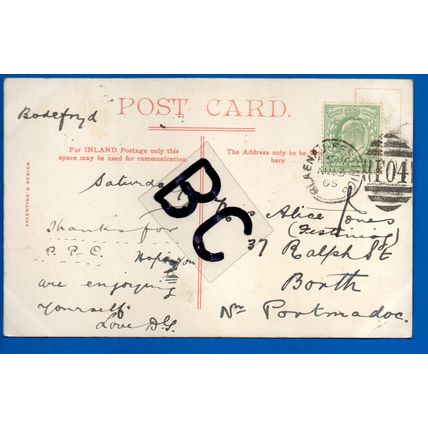 Bodefryd
POST CARD.
For INLAND Postage only this
space may be used for communication.
The Address only to be
here
VALENTINE'S SERIES
Saturday
Thanks for
P.P.C. Hope you
are enjoying
yourself.
Love
BC
Alice Jones
(Festiniog)
37 Ralph St
Borth
Nr Portmadoc.
BLAENAU
F04